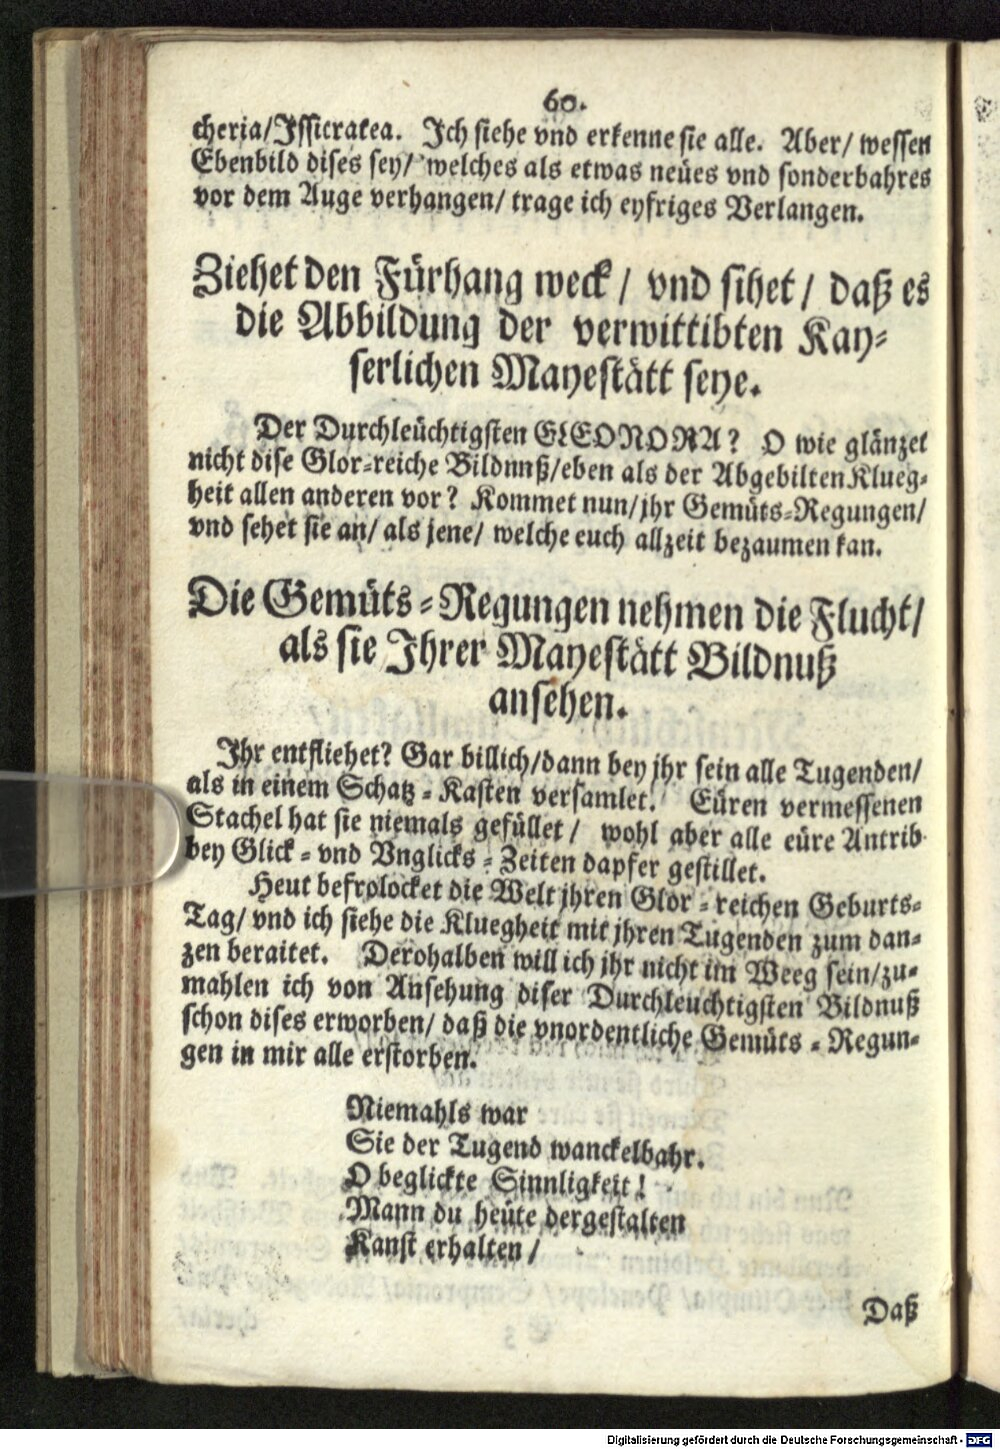 60.
cheria/Issicratea. Ich siehe vnd erkenne sie alle. Aber/ wessen
Ebenbild dises sey/ welches als etwas neües vnd sonderbahres
vor dem Auge verhangen/ trage ich eyfriges Verlangen.
Ziehet den Fürhang weck/ vnd sihet/ daß es
die Abbildung der verwittibten Kay-
serlichen Mayestätt seye.
Der Durchleüchtigsten ELEONORA? O wie glänzet
nicht dise Glor-reiche Bildnuß/eben als der Abgebilten Klueg-
heit allen anderen vor? Kommet nun/jhr Gemüts-Regungen/
vnd sehet sie an/ als jene/ welche euch allzeit bezaumen kan.
Die Gemüts-Regungen nehmen die Flucht/
als sie Ihrer Mayestätt Bildnuß
ansehen.
Ihr entfliehet? Gar billich/dann bey jhr sein alle Tugenden/
als in einem Schatz-Kasten versamlet. Eüren vermessenen
Stachel hat sie niemals gefüllet/ wohl aber alle eüre Antrib
bey Glick- vnd Vnglicks-Zeiten dapfer gestillet.
Heut befrolocket die Welt jhren Glor-reichen Geburts-
Tag/ vnd ich siehe die Kluegheit mit jhren Tugenden zum dan-
zen beraitet. Derohalben will ich jhr nicht im Weeg sein/zu-
mahlen ich von Ansehung diser Durchleuchtigsten Bildnuß
schon dises erworben/ daß die vnordentliche Gemüts-Regun-
gen in mir alle erstorben.
Niemahls war
Sie der Tugend wanckelbahr.
O beglickte Sinnligkeit!
Mann du heüte dergestalten
Kanst erhalten/
Daß
Digitalisierung gefördert durch die Deutsche Forschungsgemeinschaft - DFG